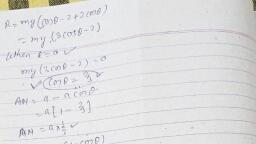 R = mg (cosθ - 2 + 2cosθ
= mg (3cosθ - 2)
When R = 0 ✓
mg (3cosθ - 2) = 0
✓ cosθ = 2/3 ✓
AN = a - a cosθ
= a [1 - 2/3]
AN = a × 1/3